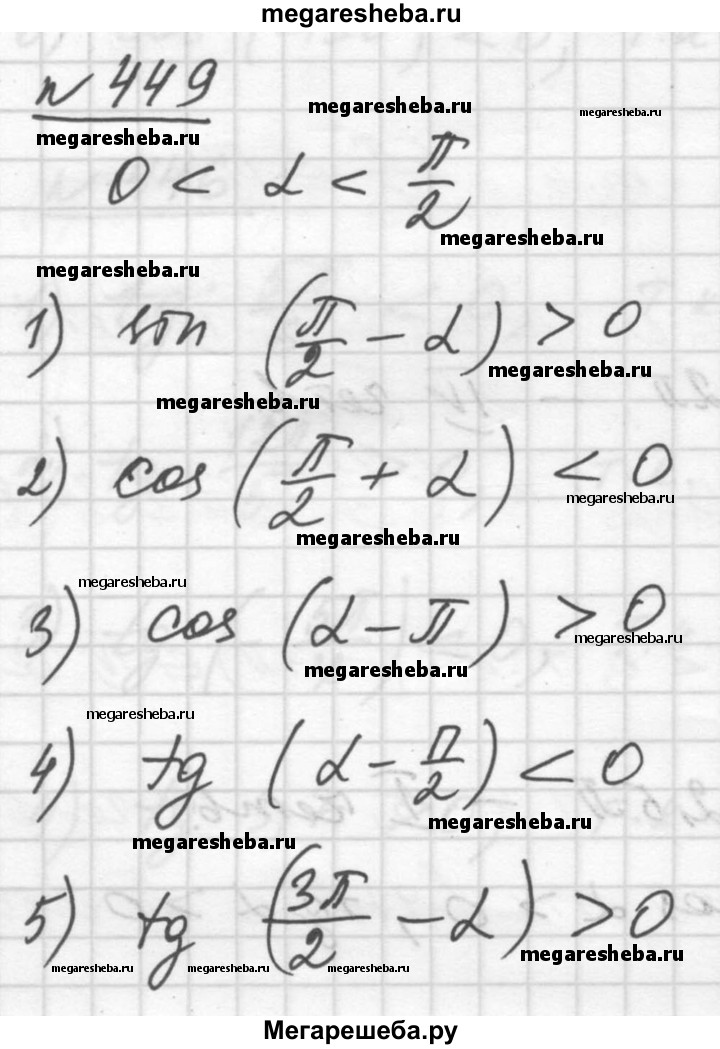 megaresheba.ru
№ 449
megaresheba.ru megaresheba.ru megaresheba.ru
0 < α < π/2
megaresheba.ru
megaresheba.ru
1) sin (π/2 − α) > 0
megaresheba.ru
megaresheba.ru
2) cos (π/2 + α) < 0
megaresheba.ru
megaresheba.ru
megaresheba.ru
3) cos (α − π) > 0
megaresheba.ru
megaresheba.ru
megaresheba.ru
4) tg (α − π/2) < 0
megaresheba.ru
megaresheba.ru
5) tg (3π/2 − α) > 0
megaresheba.ru
megaresheba.ru megaresheba.ru megaresheba.ru
Мегарешеба.ру